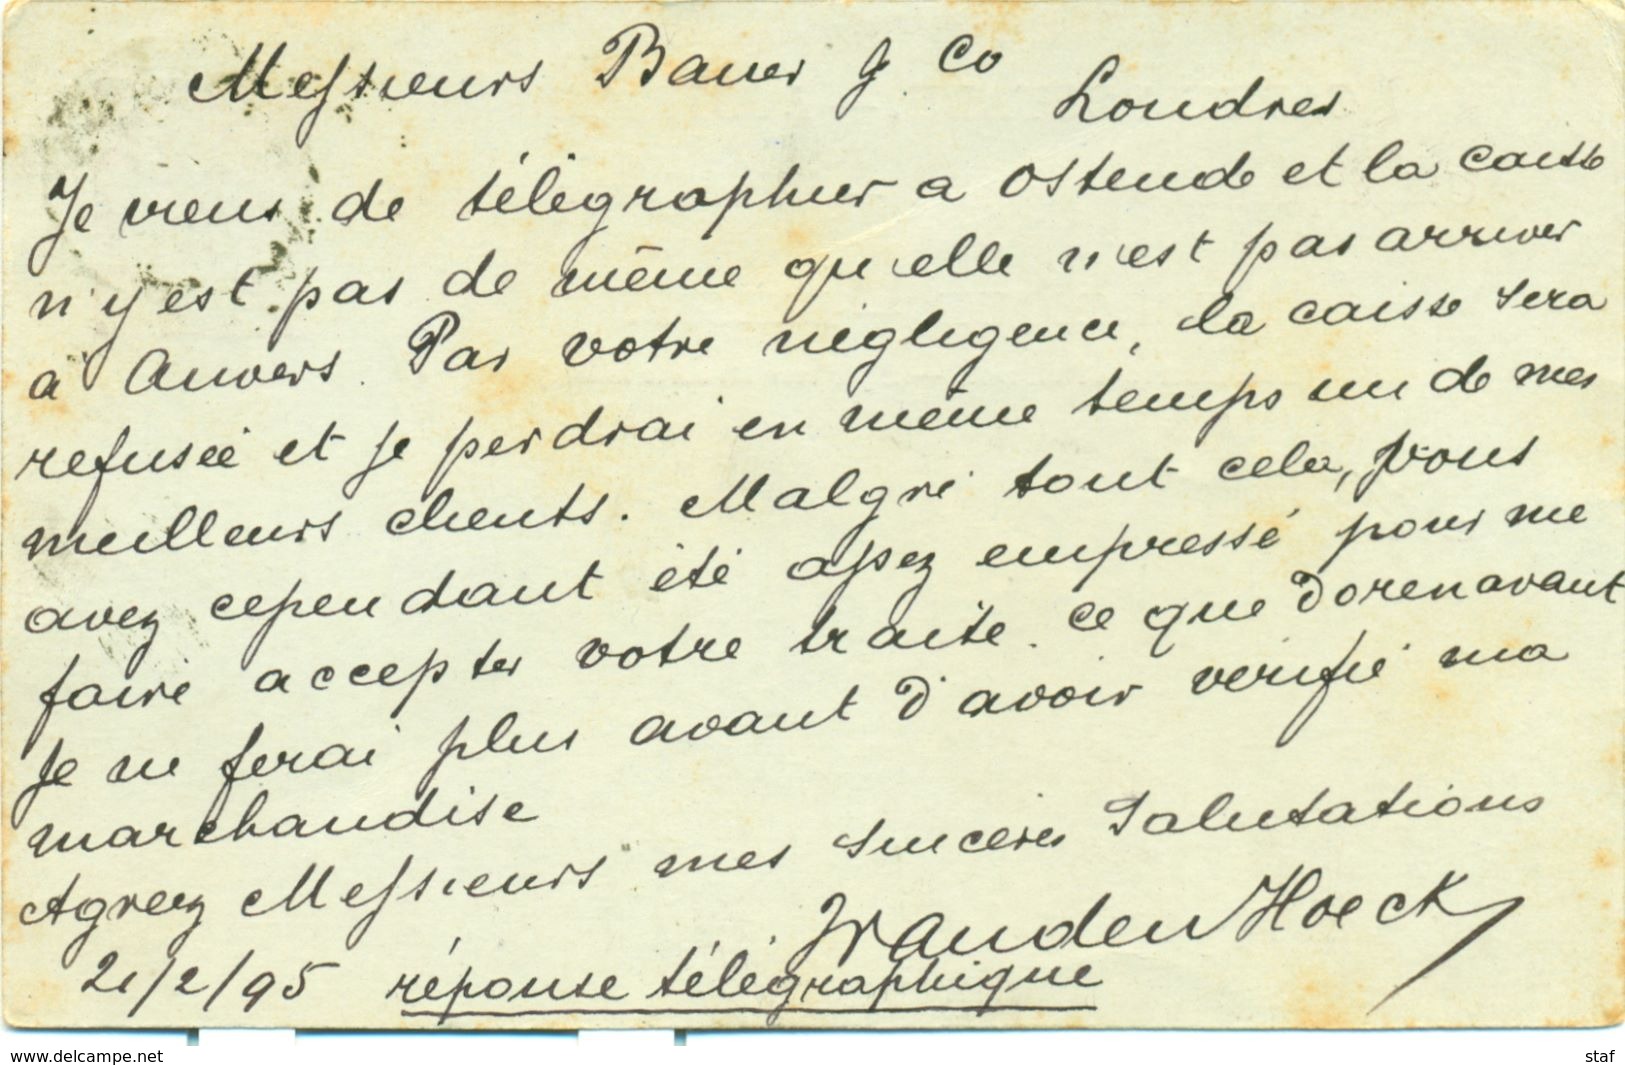 Messieurs Bauer & Co
Londres
Je viens de télégraphier a Ostende et la caisse
n'y est pas de même qu'elle n'est pas arriver
à Anvers. Par votre négligence, la caisse sera
refusée et je perdrai en même temps un de mes
meilleurs clients. Malgré tout cela, vous
avez cependant été assez empressé pour me
faire accepter votre traite. Ce que dorenavant
je ne ferai plus avant d'avoir vérifié ma
marchandise
Agreez Messieurs mes sincères Salutations
Vanden Hoeck
21/2/95 réponse télégraphique
www.delcampe.net
staf